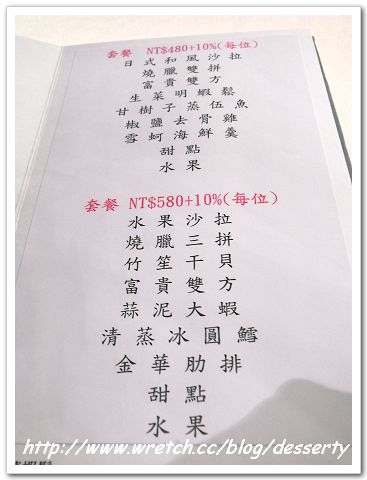 套餐 NT$480+10%(每位)
日式和風沙拉
燒臘雙拼
富貴雙方
生菜明蝦鬆
甘樹子蒸伍魚
椒鹽去骨雞
雪蚵海鮮羹
甜點
水果
套餐 NT$580+10%(每位)
水果沙拉
燒臘三拼
竹笙干貝
富貴雙方
蒜泥大蝦
清蒸冰圓鱈
金華肋排
甜點
水果
http://www.wretch.cc/blog/desserty